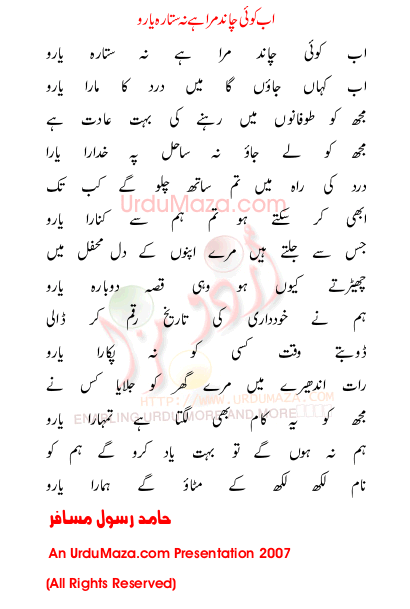 اب کوئی چاند مرا ہے نہ ستارہ یارو
اب کوئی چاند مرا ہے نہ ستارہ یارو
اب کہاں جاؤں گا میں درد کا مارا یارو
مجھ کو طوفانوں میں رہنے کی بہت عادت ہے
مجھ کو لے جاؤ نہ ساحل پہ خدارا یارا
درد کی راہ میں تم ساتھ چلو گے کب تک
UrduMaza.com
ابھی کر سکتے ہو تم ہم سے کنارا یارو
جس سے جلتے ہیں مرے اپنوں کے دل محفل میں
چھیڑتے کیوں ہو وہی قصہ دوبارہ یارو
اردو مزا
ہم نے خودداری کی تاریخ رقم کر ڈالی
ڈوبتے وقت کسی کو نہ پکارا یارو
رات اندھیرے میں مرے گھر کو جلایا کس نے
HTTP://WWW.URDUMAZA.COM
ENABLING URDU MORE AND MORE
مجھ کو یہ کام بھی لگتا ہے تمہارا یارو
ہم نہ ہوں گے تو بہت یاد کرو گے ہم کو
نام لکھ لکھ کے مٹاؤ گے ہمارا یارو
حامد رسول مسافر
An UrduMaza.com Presentation 2007
(All Rights Reserved)